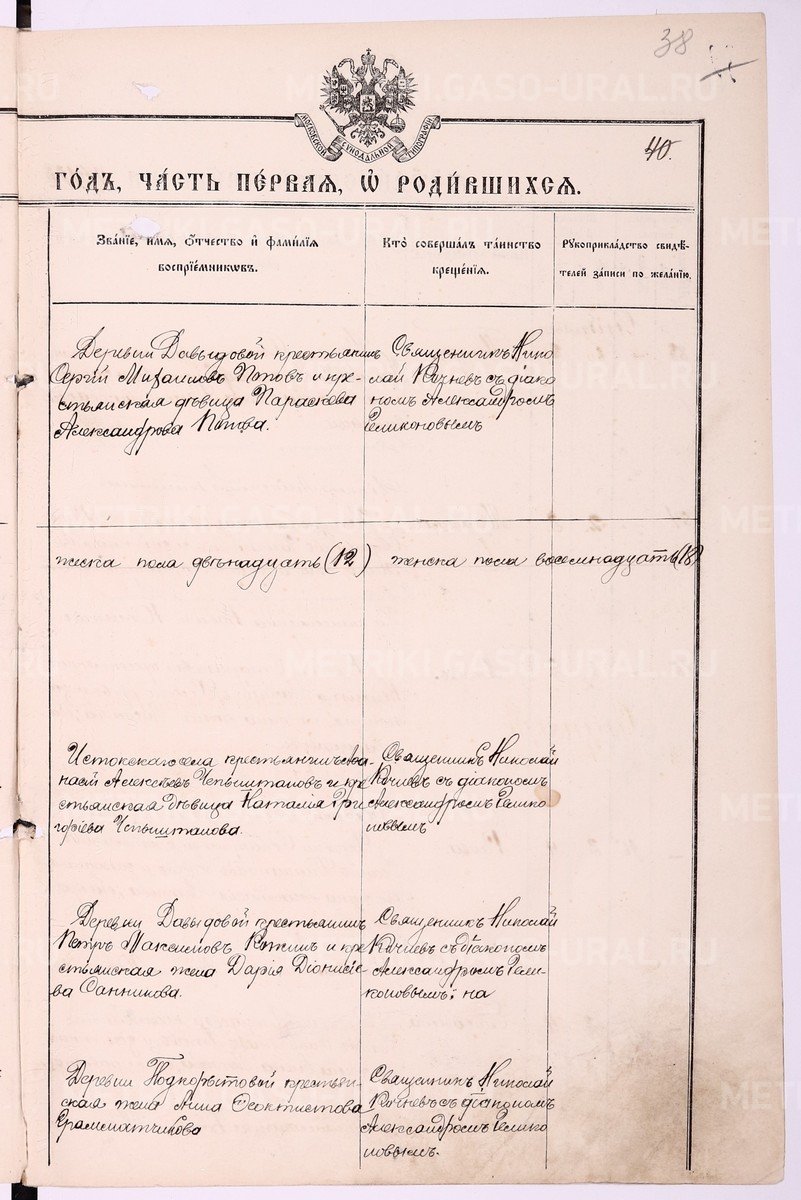 38
METRIKI.GASO-URAL.RU
МОСКОВСКОЙ СѴНОДАЛЬНОЙ ТИПОГРАФІИ
40.
ГО́ДЪ, ЧА́СТЬ ПЕ́РВАЯ, Ѡ҆ РОДИ́ВШИХСЯ.
Зва́нїе, и́мя, ѻ҆́тчество и҆ фами́лїя
воспрїе́мникωвъ.
Кто̀ соверша́лъ та́инство
креще́нїя.
Рꙋкоприкла́дство свидѣ́-
телей за́писи по жела́нїю.
Деревни Давыдовой крестьянинъ
Сергій Михаиловъ Поповъ и кре-
стьянская дѣвица Параскева
Александрова Попова.
Священникъ Нико
лай Кочневъ съ діако
номъ Александромъ
Геликоновымъ
пола двѣнадцать (12)
женска пола восемнадцать (18)
Истокскаго села крестьянинъ Афа-
насій Алексѣевъ и кре
стьянская дѣвица Наталія Гри
горіева
Священникъ Николай
Кочневъ съ діакономъ
Александромъ Гелико
новымъ
Деревни Давыдовой крестьянинъ
Петръ Максимовъ и кре
стьянская жена Дарія Діонисіе
ва Санникова.
Священникъ Николай
Кочневъ съ діакономъ
Александромъ Гели-
коновымъ; на
Деревни крестьян-
ская жена Анна Ѳеоктистова
Грамматчикова
Священникъ Николай
Кочневъ съ діакономъ
Александромъ Гелико
новымъ.